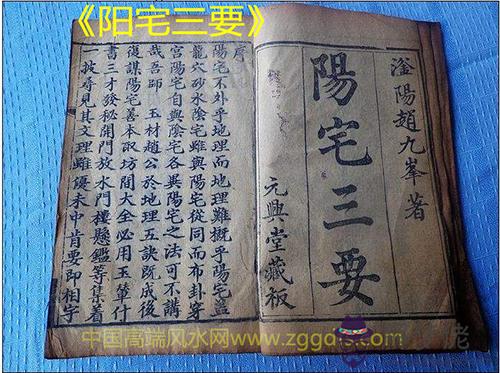 《阳宅三要》
滏陽趙九峯著
陽宅三要
元興堂藏板
序
陽宅不外乎地理而地理難概乎陽宅蓋
龍穴砂水陰宅雖與陽宅從同而布卦穿
宮陽宅自與陰宅各異陽宅之法可不講
哉吾師 玉材趙公於地理五訣既成後
復謀陽宅善本取坊間大全必用玉輦什
書三才發秘開門放水門樓懸鑑等集着
一披尋見其文理雖優未中肯要即相字
中国高端风水网www.zggdfs.com